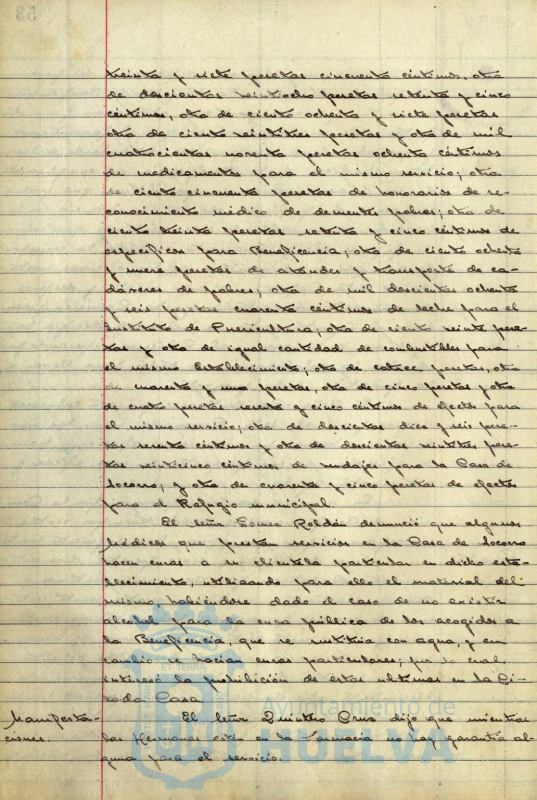 treinta y siete pesetas cincuenta céntimos, otra
de doscientas veintiocho pesetas setenta y cinco
céntimos, otra de ciento ochenta y siete pesetas
otra de ciento veintitres pesetas y otra de mil
cuatrocientas noventa pesetas ochenta céntimos
de medicamentos para el mismo servicio; otra
de ciento cincuenta pesetas de honorarios de re-
conocimiento médico de dementes pobres; otra de
ciento treinta pesetas setenta y cinco céntimos de
específicos para Beneficencia; otra de ciento ochenta
y nueve pesetas de ataudes y transporte de ca-
dáveres de pobres; otra de mil doscientas ochenta
y seis pesetas cuarenta céntimos de leche para el
Instituto de Puericultura; otra de ciento veinte pese-
tas y otra de igual cantidad de combustibles para
el mismo Establecimiento; otra de catorce pesetas, otra
de cuarenta y una pesetas, otra de cinco pesetas y otra
de cuatro pesetas sesenta y cinco céntimos de efectos para
el mismo servicio; otra de doscientas diez y seis pese-
tas sesenta céntimos y otra de doscientas veintitres pese-
tas veinticinco céntimos de vendajes para la Casa de
Socorro; y otra de cuarenta y cinco pesetas de efectos
para el Refugio municipal.
El Señor Gomez Roldán denunció que algunos
Médicos que prestan servicios en la Casa de Socorro
hacen curas a su clientela particular en dicho esta-
blecimiento, utilizando para ello el material del
mismo, habiéndose dado el caso de no existir
alcohol para la cura pública de los acogidos a
la Beneficencia, que se sustituia con agua, y en
cambio se hacian curas particulares; por lo cual
interesó la prohibición de éstas ultimas en la Ci-
tada Casa
Manifesta-
ciones.
El Señor Quintero Cruz dijo que mientras
las Hermanas estén en la Farmacia no hay garantía al-
guna para el servicio.
Ayuntamiento de
HUELVA
53